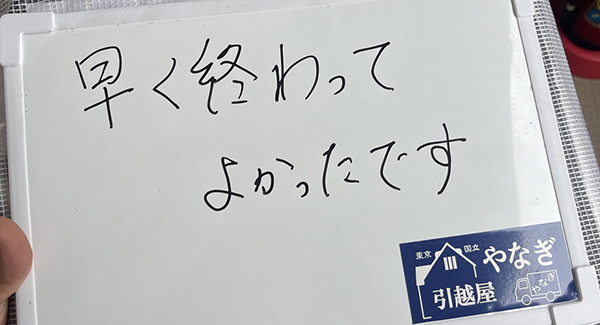 早く終わって
よかったです
東京 国立 やなぎ
引越屋
やなぎ